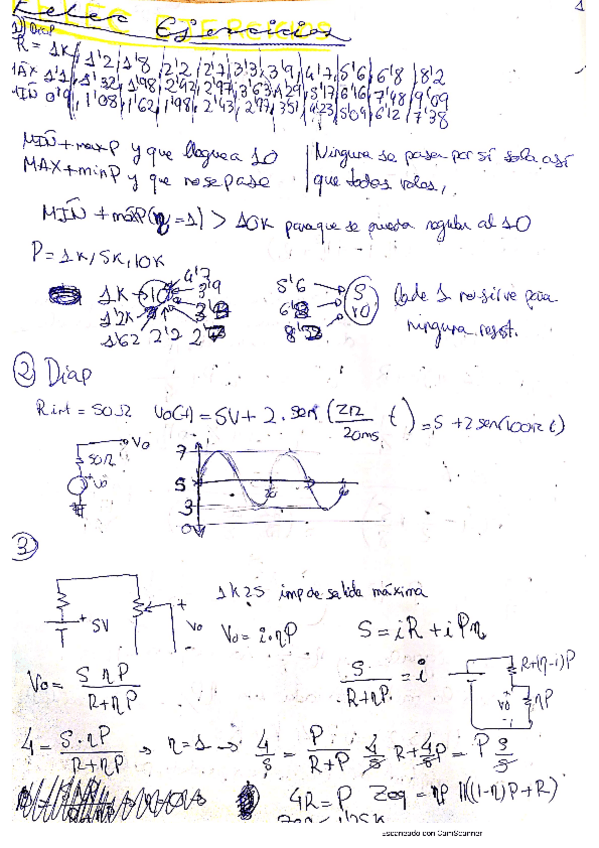 Felec Ejercicios
1
1) Diap
R = 1K, 1'2, 1'8, 2'2, 2'7, 3'3, 3'9, 4'7, 5'6, 6'8, 8'2
MÁX 1'1, 1'32, 1'98, 2'42, 2'97, 3'63, 4'29, 5'17, 6'16, 7'48, 9'09
MIÑ 0'9, 1'08, 1'62, 1'98, 2'43, 2'97, 3'51, 4'23, 5'04, 6'12, 7'38
MIÑ + max P y que llegue a 10
MAX + min P y que no se pase
Ninguna se pasa por sí sola así
que todas valen,
MIÑ + máxP (η = 1) > 10K para que se pueda regular al 10
P = 1K, 5K, 10K
4'7
1K 10 3'9
1'2K
1'62 2'2
5'6
5
8'2
10
La de 1 no sirve para
ninguna resist.
② Diap
Rint = 50Ω Vo(t) = 5V + 2 · sen (2π/20ms t) = 5 + 2 sen(100π t)
Vo
50Ω
7
5
3
0
③
1K25 imp de salida máxima
+ 5V
+ Vo
Vo = i·ηP
5 = iR + iPη
Vo = 5ηP / R+ηP
5 / R+ηP = i
R+(η-1)P
ηP
4 = 5·ηP / R+ηP → η=1 → 4/5 = P / R+P
4R = P Zeq = ηP ||((1-η)P+R)
Escaneado con CamScanner